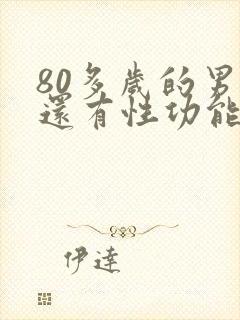 80多歲的男
還有性功能
伊達